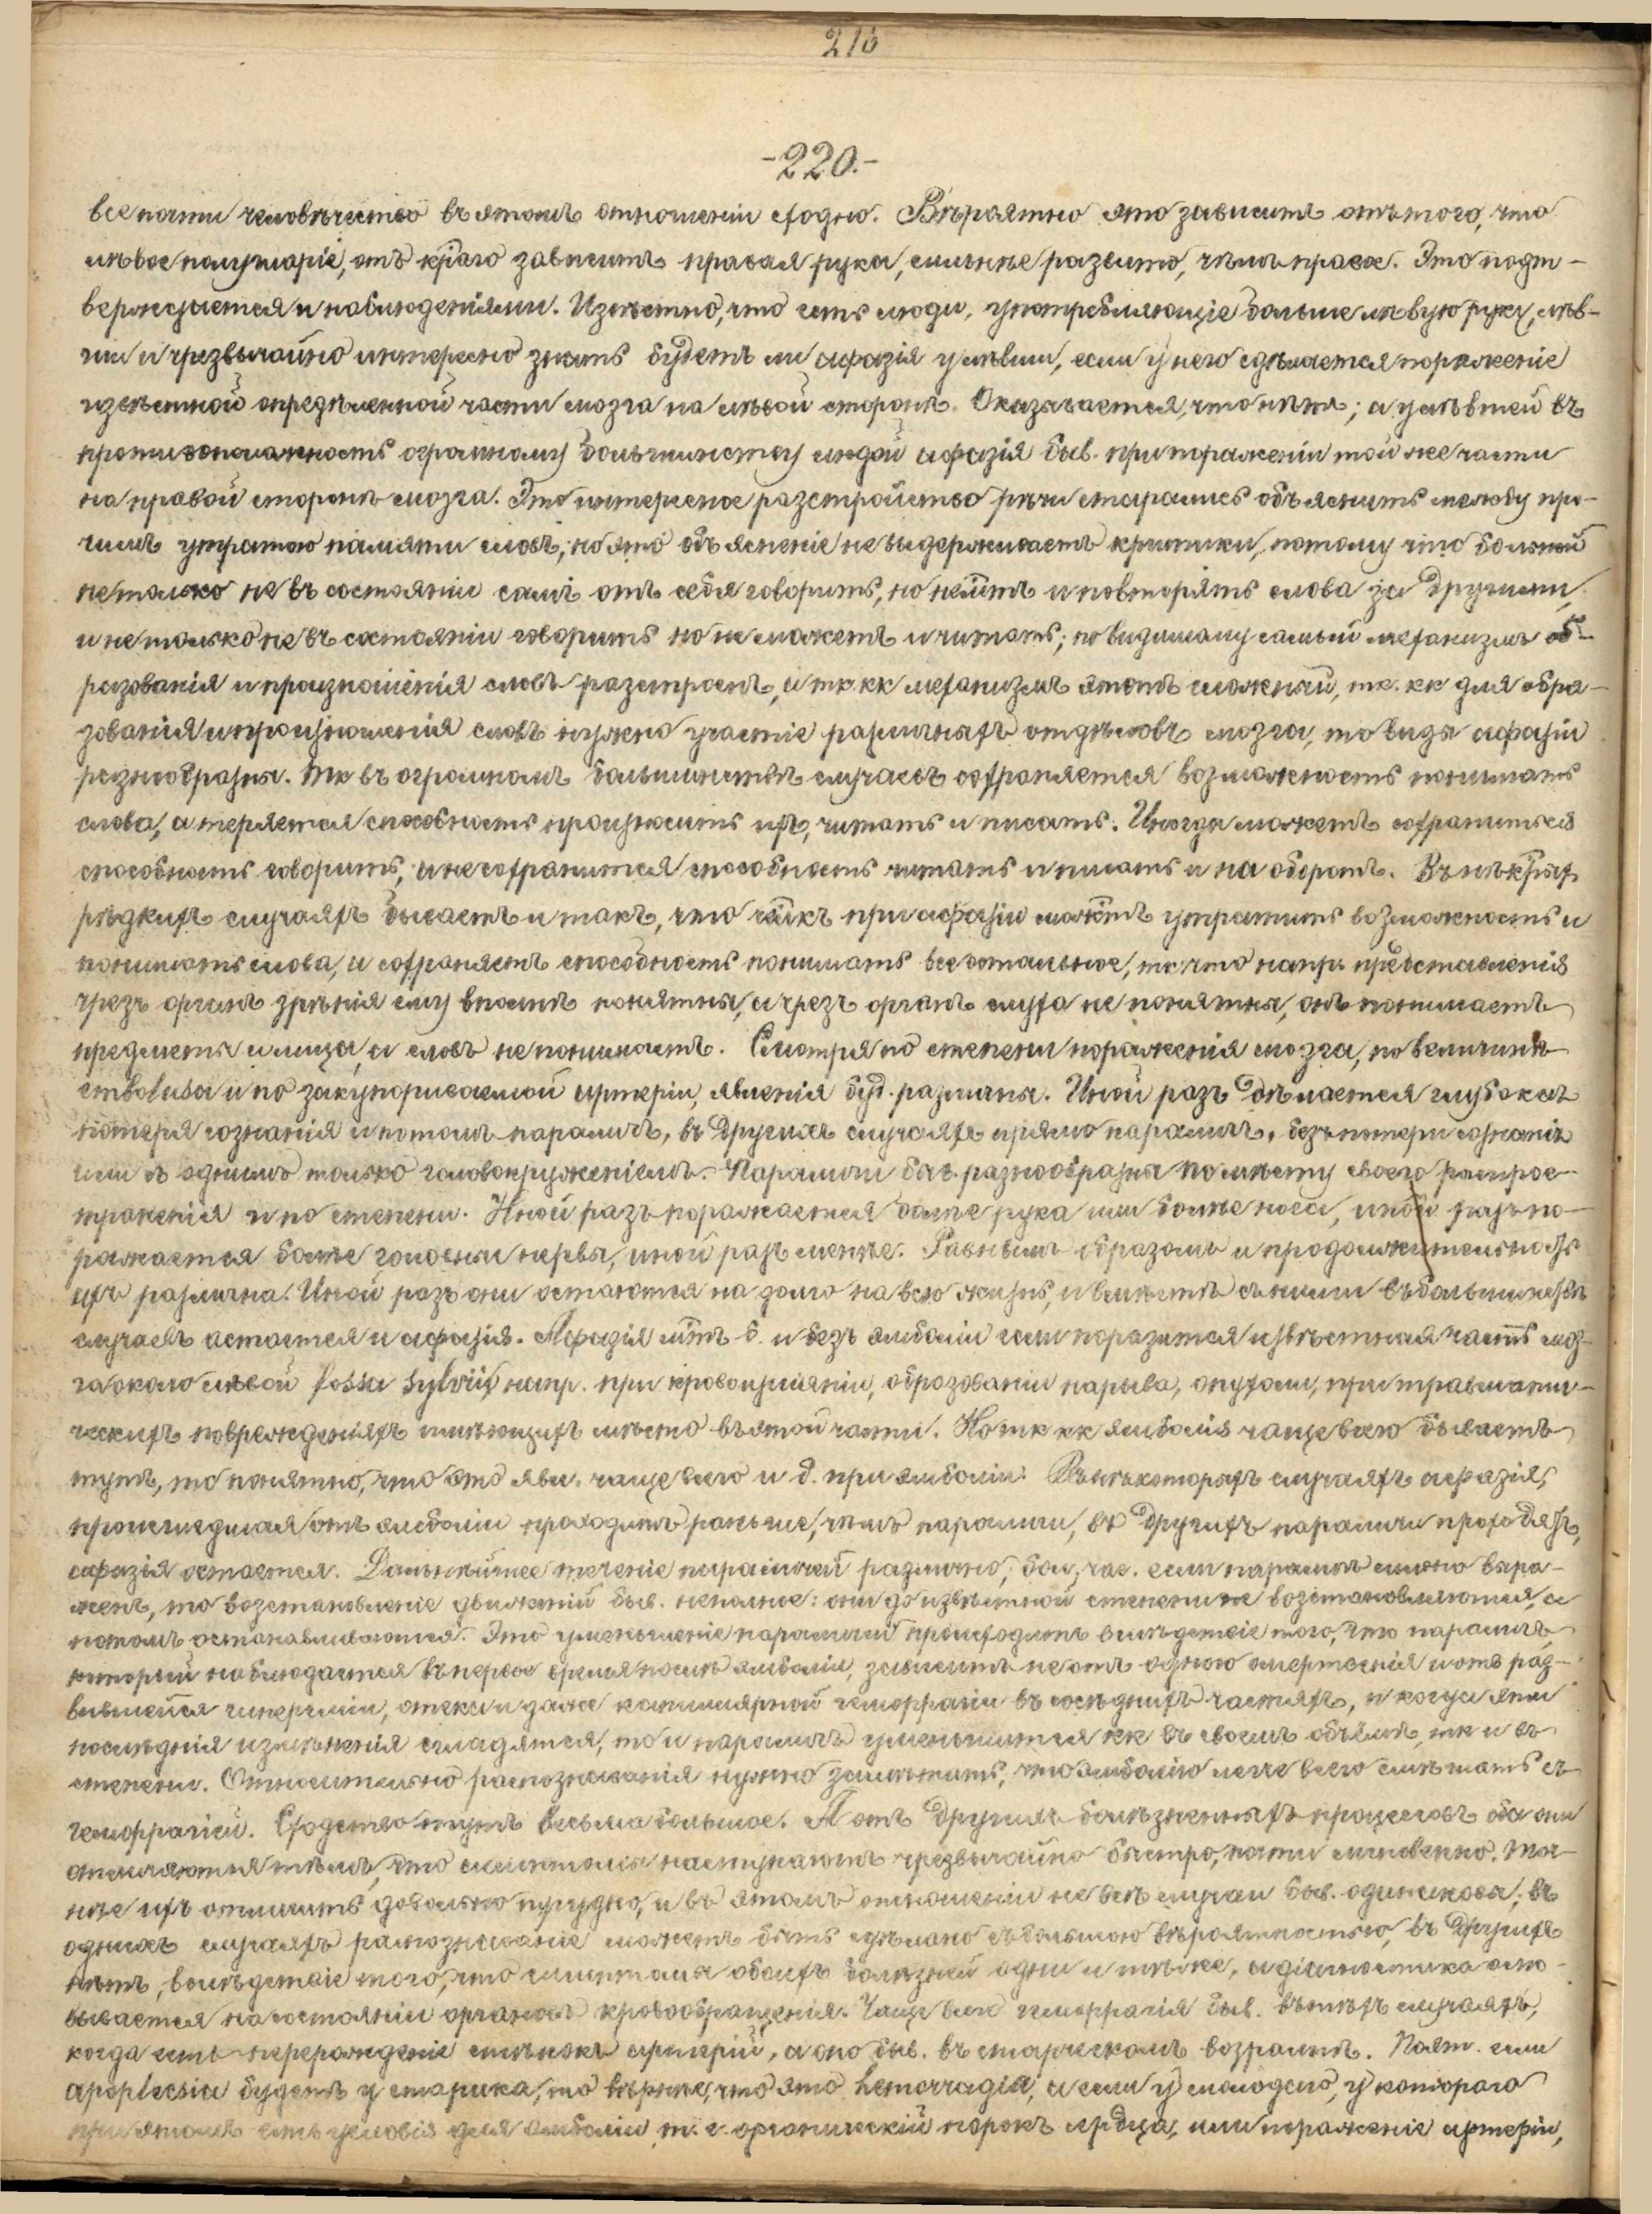 216
-220.-
все почти человѣчество въ этомъ отношеніи сходно. Вѣроятно это зависитъ отъ того, что
лѣвое полушаріе, отъ к̅раго зависитъ правая рука, сильнѣе развито, чѣмъ правое. Это подт-
верждается и наблюденіями. Извѣстно, что есть люди, употребляющіе больше лѣвую руку, лѣв-
ши и чрезвычайно интересно знать будетъ ли афазія у лѣвши, если у него сдѣлается пораженіе
извѣстной опредѣленной части мозга на лѣвой сторонѣ. Оказывается, что нѣтъ; а у лѣвшей въ
противоположность огромному большинству людей афазія быв. при пораженіи той же части
на правой сторонѣ мозга. Это интересное разстройство рѣчи старались объяснить между про-
чимъ утратою памяти словъ; но это объясненіе не выдерживаетъ критики, потому что больной
не только не въ состояніи самъ отъ себя говорить, но не м̅тъ и повторять слова за другими,
и не только не въ состояніи говорить но не можетъ и читать; по видимому самый механизмъ об-
разованія и произношенія словъ разстроенъ, и тк. кк механизмъ этотъ сложный, тк. кк для обра-
зованія и произношенія словъ нужно участіе различныхъ отдѣловъ мозга, то виды афазіи
разнообразны. Тк въ огромномъ большинствѣ случаевъ сохраняется возможность понимать
слова, а теряется способность произносить ихъ, читать и писать. Иногда можетъ сохраниться
способность говорить, и не сохранится способность читать и писать и на оборотъ. Въ нѣк̅рыхъ
рѣдкихъ случаяхъ бываетъ и такъ, что ч̅лкъ при афазіи мож̅тъ утратить возможность и
понимать слова, и сохраняетъ способность понимать все остальное, тк что напр. представленія
чрезъ органъ зрѣнія ему вполнѣ понятны, а чрезъ органъ слуха не понятны, онъ понимаетъ
предметы и лица, а словъ не понимаетъ. Смотря по степени пораженія мозга, по величинѣ
embolusa и по закупориваемой артеріи, явленія буд. различны. Иной разъ дѣлается глубокая
потеря сознанія и потомъ параличъ, въ другихъ случаяхъ прямо параличъ, безъ потери сознанія
или съ однимъ только головокруженіемъ. Параличи быв. разнообразны по мѣсту своего распрос-
траненія и по степени. Иной разъ поражается болѣе рука или болѣе нога, иной разъ по-
ражается болѣе головные нервы, иной разъ менѣе. Равнымъ образомъ и продолжительность
ихъ различна. Иной разъ они остаются на долго на всю жизнь, и вмѣстѣ съ ними въ большинствѣ
случаевъ остается и афазія. Афазія м̅тъ б. и безъ эмболіи если поразится извѣстная часть моз-
га около лѣвой fossa Sylvii, напр. при кровоизліяніи, образованіи нарыва, опухоли, при травмати-
ческихъ поврежденіяхъ имѣющихъ мѣсто въ этой части. Но тк кк эмболія чаще всего бываетъ
тутъ, то понятно, что это явл. чаще всего и б. при эмболіи. Въ нѣкоторыхъ случаяхъ афазія,
происшедшая отъ эмболіи проходитъ раньше, чѣмъ параличи, въ другихъ параличи проходятъ,
афазія остается. Дальнѣйшее теченіе параличей различно, бол. час. если параличъ сильно выра-
женъ, то возстановленіе движеній быв. неполное: они до извѣстной степени возстановляются, а
потомъ останавливаются. Это уменьшеніе параличей происходитъ вслѣдствіе того, что параличъ,
который наблюдается въ первое время послѣ эмболіи, зависитъ не отъ одного омертвенія и отъ раз-
вившейся гипереміи, отека и даже капиллярной геморрагіи въ сосѣднихъ частяхъ, и когда эти
послѣднія измѣненія сгладятся, то и параличъ уменьшится кк въ своемъ объемѣ, тк и въ
степени. Относительно распознаванія нужно замѣтить, что эмболію легче всего смѣшать съ
геморрагіей. Сходство тутъ весьма большое. А отъ другихъ болѣзненныхъ процессовъ оба они
отличаются тѣмъ, что симптомы наступаютъ чрезвычайно быстро, почти мгновенно. Точ-
нѣе ихъ отличить довольно трудно, и въ этомъ отношеніи не всѣ случаи быв. одинаковы; въ
однихъ случаяхъ распознаваніе можетъ быть сдѣлано съ большою вѣроятностью, въ другихъ
нѣтъ, вслѣдствіе того, что симптомы обоихъ болѣзней одни и тѣ же, а діагностика осно-
вывается на состояніи органовъ кровообращенія. Чаще всего геморрагія быв. въ тѣхъ случаяхъ,
когда есть перерожденіе стѣнокъ артерій, а оно быв. въ старческомъ возрастѣ. Поэт. если
apoplecsia будетъ у старика, то вѣрнѣе, что это hemorragia, а если у молодого, у котораго
при этомъ есть условія для эмболіи, т. е. органическій порокъ сердца, или пораженіе артеріи,